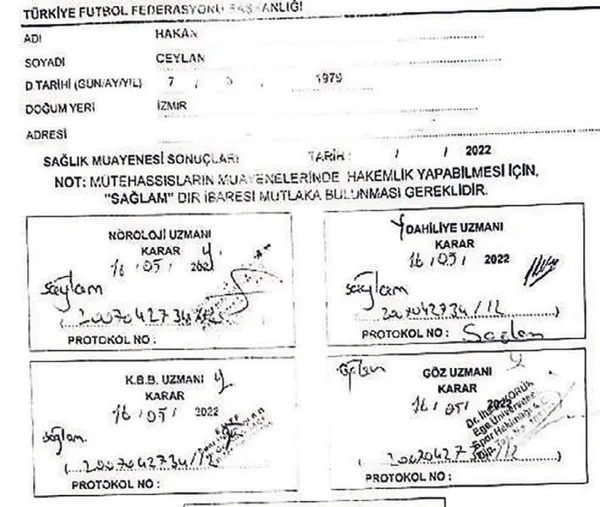 TÜRKİYE FUTBOL FEDERASYONU BAŞKANLIĞI
ADI HAKAN
SOYADI CEYLAN
D TARİHİ (GÜN/AY/YIL) 7 / / 1979
DOĞUM YERİ İZMİR
ADRESİ
SAĞLIK MUAYENESİ SONUÇLARI TARİH: / / 2022
NOT: MÜTEHASSISLARIN MUAYENELERİNDE HAKEMLİK YAPABİLMESİ İÇİN,
"SAĞLAM" DIR İBARESİ MUTLAKA BULUNMASI GEREKLİDİR.
NÖROLOJİ UZMANI
KARAR
16 / 05 /
sağlam
PROTOKOL NO :
DAHİLİYE UZMANI
KARAR
16 / 05 / 2022
sağlam
( 2007042734/12 )
PROTOKOL NO : Sağlam
K.B.B. UZMANI
KARAR
16 / 05 / 2022
sağlam
( 2007042734/12
PROTOKOL NO :
GÖZ UZMANI
KARAR
16 / 05 / 2022
Ege Üniversitesi
Spor Hekimliği
PROTOKOL NO :